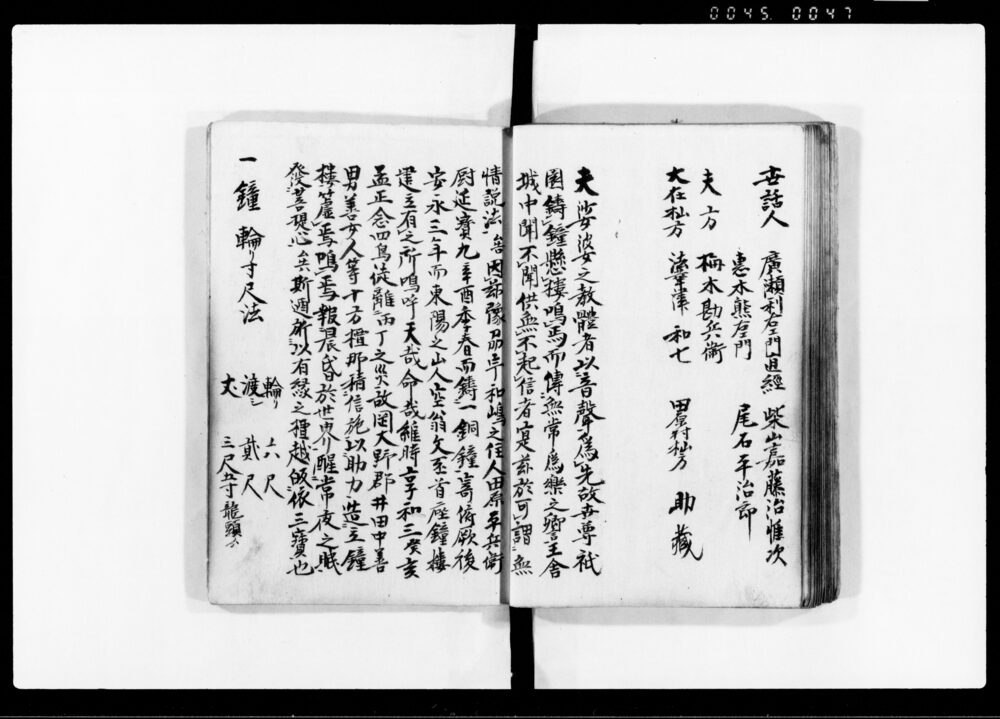 0045. 0047
世話人 廣瀬利右エ門直經 柴山嘉藤治惟次
恵木熊右門 尾石平治郎
夫方 梅木勘兵衛
大在村方 和七 田原村方 助藏
夫娑婆之教體者以音聲為先故世尊祇
園鑄鐘懸樓鳴焉而傳無常為樂之響王舍
城中聞不聞供無不起信者寔茲於可謂無
情説法 因茲豫 和嶋之住人田原平兵衛
尉延寶九辛酉季春而鑄一銅鐘寄附厥後
安永三年而東陽之山人空翁文至首座鐘樓
建立有之所嗚呼天哉命哉維時享和三癸亥
孟正念四鳥徒離丙丁之災故国大野郡井田中善
男善女人等十方檀那積信施以助力造立鐘
樓簴焉鳴焉報晨昏於世界醒常夜之眠
發菩提心矣斯廼所以有縁之檀越皈依三寶也
一鐘輪リ寸尺法
輪リ 六尺
渡シ 貳尺
丈 三尺五寸 龍頭